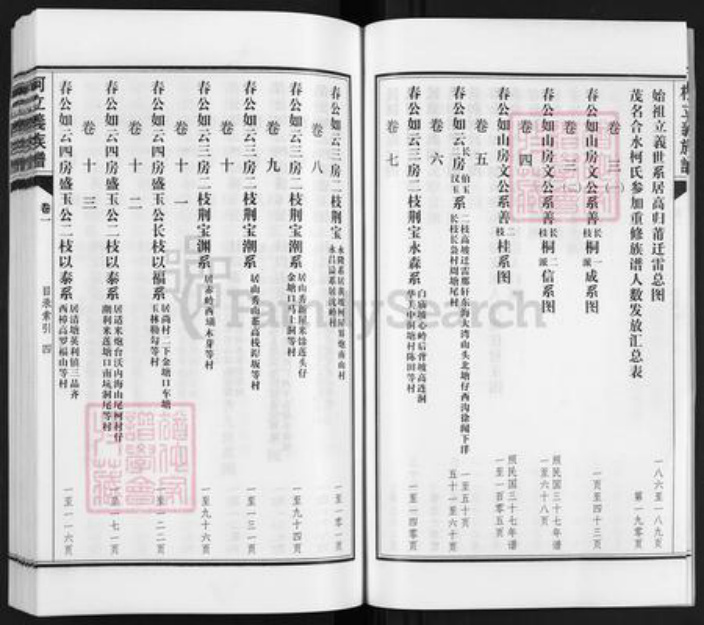 始祖立義世系居高归莆迁雷总图 一八六至一八九页
茂名合水柯氏参加重修族谱人数发放汇总表 第一九零页
卷三(一)
春公如山房文公系善长枝桐一派成系图 一页至四十三页
卷三(二)
春公如山房文公系善长枝桐二派信系图 照民国三十七年谱 一至六十八页
卷四
春公如山房文公系善二枝桂系图 照民国三十七年谱 一至一百零五页
卷五
春公如云长二房伯玉汉玉系 二枝高坡迁雷那轩东海大湾山头北塘仔西沟徐闻下洋 长枝长袅村周塘尾村 一至五十页 五十一至六十页
卷六
春公如云三房二枝荆宝永森系 白庙坡心岭后背坡高连洞 华美中洞塘村陈田等村 一至一四零页
卷七
春公如云三房二枝荆宝 永隆系居黄坡柯屋警炮南山村 永昌溢系居沈岭村 一至一零一页
卷八
春公如云三房二枝荆宝潮系 居山秀新屋米馀莲头仔 金塘口马上洞等村 一至九十四页
卷九
春公如云三房二枝荆宝潮系 居山秀山寨高栈踎坂等村 一至一三一页
卷十
春公如云三房二枝荆宝渊系 居赤岭西埇木芽等村 一至九十六页
卷十一
春公如云四房盛玉公长枝以福系 居尚村二下金塘口车塘 玉林勒勾等村 一至一二二页
卷十二
春公如云四房盛玉公二枝以泰系 居洁米炮台沃内海山尾柯村仔 潮利米莲塘口南坑洞尾等村 一至一七一页
卷十三
春公如云四房盛玉公二枝以泰系 居洁塘英利镇三品齐 西樟高罗福山等村 一至一一六页
柯立義族譜
卷一
目录索引
四
FamilySearch